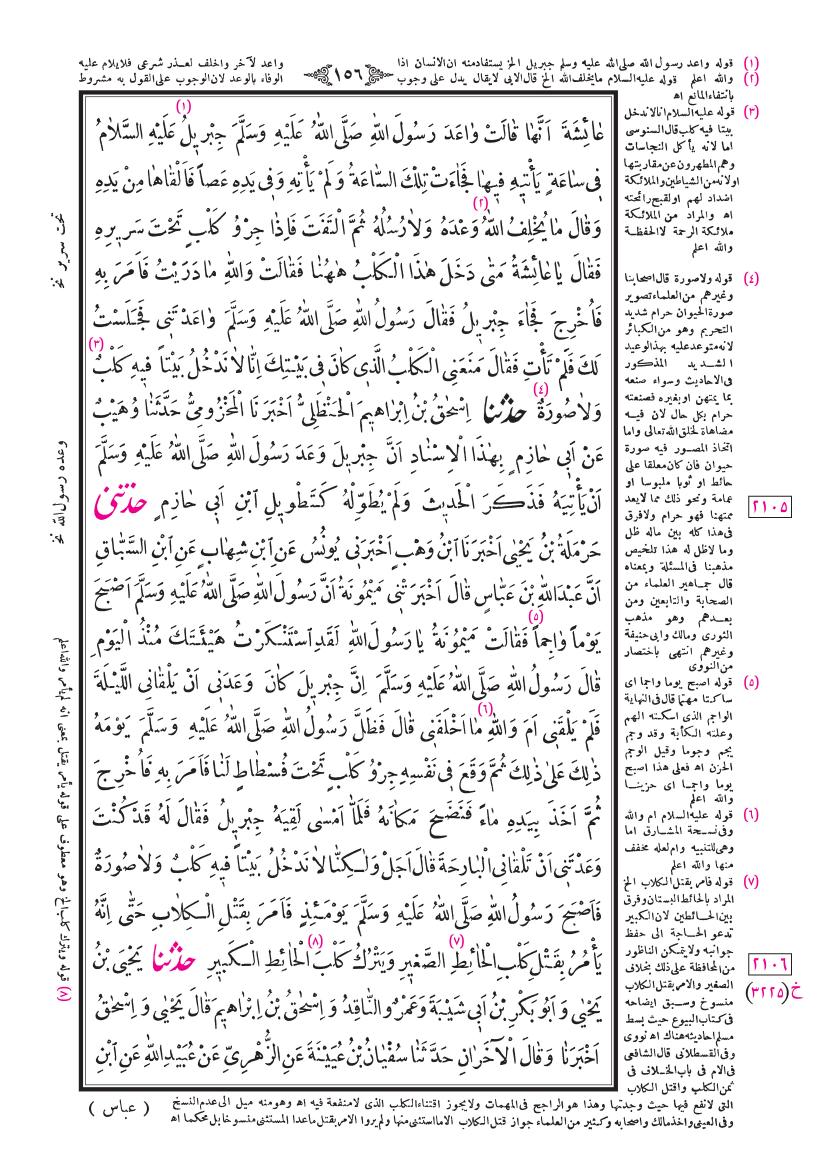 (١) قوله واعد رسول الله صلى الله عليه وسلم جبريل الخ يستفاد منه ان الانسان اذا
(٢) والله اعلم قوله عليه السلام ما يخلف الله الخ قال الابى لايقال يدل على وجوب
١٥٦
واعد لآخر واخلف لعذر شرعى فلايلام عليه
الوفاء بالوعد لان الوجوب على القول به مشروط
بانتفاء المانع اه
عَائِشَةَ اَنَّهَا قَالَتْ وَاعَدَ رَسُولَ اللهِ صَلَّى اللهُ عَلَيْهِ وَسَلَّمَ جِبْرِيلُ (١) عَلَيْهِ السَّلَامُ
فِى سَاعَةٍ يَأْتِيهِ فِيهَا فَجَاءَتْ تِلْكَ السَّاعَةُ وَلَمْ يَأْتِهِ وَفِى يَدِهِ عَصاً فَاَلْقَاهَا مِنْ يَدِهِ
وَقَالَ مَا يُخْلِفُ اللهُ (٢) وَعْدَهُ وَلَا رُسُلُهُ ثُمَّ الْتَفَتَ فَاِذَا جِرْوُ كَلْبٍ تَحْتَ سَرِيرِهِ
فَقَالَ يَا عَائِشَةُ مَتَى دَخَلَ هٰذَا الْكَلْبُ هٰهُنَا فَقَالَتْ وَاللهِ مَا دَرَيْتُ فَاَمَرَ بِهِ
فَاُخْرِجَ فَجَاءَ جِبْرِيلُ فَقَالَ رَسُولُ اللهِ صَلَّى اللهُ عَلَيْهِ وَسَلَّمَ وَاعَدْتَنِى فَجَلَسْتُ
لَكَ فَلَمْ تَأْتِ فَقَالَ مَنَعَنِى الْكَلْبُ الَّذِى كَانَ فِى بَيْتِكَ اِنَّا لَا نَدْخُلُ بَيْتاً فِيهِ كَلْبٌ (٣)
وَلَا صُورَةٌ (٤) حَدَّثَنَا اِسْحٰقُ بْنُ اِبْرَاهِيمَ الْحَنْظَلِىُّ اَخْبَرَنَا الْمَخْزُومِىُّ حَدَّثَنَا وُهَيْبٌ
عَنْ اَبِى حَازِمٍ بِهٰذَا الْاِسْنَادِ اَنَّ جِبْرِيلَ وَعَدَ رَسُولَ اللهِ صَلَّى اللهُ عَلَيْهِ وَسَلَّمَ
اَنْ يَأْتِيَهُ فَذَكَرَ الْحَدِيثَ وَلَمْ يُطَوِّلْهُ كَتَطْوِيلِ ابْنِ اَبِى حَازِمٍ حَدَّثَنِى
حَرْمَلَةُ بْنُ يَحْيٰى اَخْبَرَنَا ابْنُ وَهْبٍ اَخْبَرَنِى يُونُسُ عَنِ ابْنِ شِهَابٍ عَنِ ابْنِ السَّبَّاقِ
اَنَّ عَبْدَ اللهِ بْنَ عَبَّاسٍ قَالَ اَخْبَرَتْنِى مَيْمُونَةُ اَنَّ رَسُولَ اللهِ صَلَّى اللهُ عَلَيْهِ وَسَلَّمَ اَصْبَحَ
يَوْماً وَاجِماً (٥) فَقَالَتْ مَيْمُونَةُ يَا رَسُولَ اللهِ لَقَدِ اسْتَنْكَرْتُ هَيْئَتَكَ مُنْذُ الْيَوْمِ
قَالَ رَسُولُ اللهِ صَلَّى اللهُ عَلَيْهِ وَسَلَّمَ اِنَّ جِبْرِيلَ كَانَ وَعَدَنِى اَنْ يَلْقَانِى اللَّيْلَةَ
فَلَمْ يَلْقَنِى اَمَ وَاللهِ (٦) مَا اَخْلَفَنِى قَالَ فَظَلَّ رَسُولُ اللهِ صَلَّى اللهُ عَلَيْهِ وَسَلَّمَ يَوْمَهُ
ذٰلِكَ عَلَى ذٰلِكَ ثُمَّ وَقَعَ فِى نَفْسِهِ جِرْوُ كَلْبٍ تَحْتَ فُسْطَاطٍ لَنَا فَاَمَرَ بِهِ فَاُخْرِجَ
ثُمَّ اَخَذَ بِيَدِهِ مَاءً فَنَضَحَ مَكَانَهُ فَلَمَّا اَمْسٰى لَقِيَهُ جِبْرِيلُ فَقَالَ لَهُ قَدْ كُنْتَ
وَعَدْتَنِى اَنْ تَلْقَانِى الْبَارِحَةَ قَالَ اَجَلْ وَلٰكِنَّا لَا نَدْخُلُ بَيْتاً فِيهِ كَلْبٌ وَلَا صُورَةٌ
فَاَصْبَحَ رَسُولُ اللهِ صَلَّى اللهُ عَلَيْهِ وَسَلَّمَ يَوْمَئِذٍ فَاَمَرَ بِقَتْلِ الْكِلَابِ حَتّٰى اِنَّهُ
يَأْمُرُ بِقَتْلِ كَلْبِ الْحَائِطِ (٧) الصَّغِيرِ وَيَتْرُكُ كَلْبَ (٨) الْحَائِطِ الْكَبِيرِ حَدَّثَنَا يَحْيَى بْنُ
يَحْيٰى وَاَبُو بَكْرِ بْنُ اَبِى شَيْبَةَ وَعَمْرٌو النَّاقِدُ وَاِسْحٰقُ بْنُ اِبْرَاهِيمَ قَالَ يَحْيٰى وَاِسْحٰقُ
اَخْبَرَنَا وَقَالَ الْآخَرَانِ حَدَّثَنَا سُفْيَانُ بْنُ عُيَيْنَةَ عَنِ الزُّهْرِىِّ عَنْ عُبَيْدِ اللهِ عَنِ ابْنِ
(٣) قوله عليه السلام انا لاندخل
بيتا فيه كلب قال السنوسى
اما لانه يأكل النجاسات
وهم المطهرون عن مقاربتها
اولانه من الشياطين والملائكة
اضداد لهم اولقبح رائحته
اه والمراد من الملائكة
ملائكة الرحمة لا الحفظة
والله اعلم
(٤) قوله ولا صورة قال اصحابنا
وغيرهم من العلماء تصوير
صورة الحيوان حرام شديد
التحريم وهو من الكبائر
لانه متوعد عليه بهذا الوعيد
الشديد المذكور
فى الاحاديث وسواء صنعه
بما يمتهن او بغيره فصنعته
حرام بكل حال لان فيه
مضاهاة لخلق الله تعالى واما
اتخاذ المصور فيه صورة
حيوان فان كان معلقا على
حائط او ثوبا ملبوسا او
عمامة ونحو ذلك مما لايعد
ممتهنا فهو حرام ولافرق
فى هذا كله بين ماله ظل
وما لاظل له هذا تلخيص
مذهبنا فى المسئلة وبمعناه
قال جماهير العلماء من
الصحابة والتابعين ومن
بعدهم وهو مذهب
الثورى ومالك وابى حنيفة
وغيرهم انتهى باختصار
من النووى
(٥) قوله اصبح يوما واجما اى
ساكتا مهتما قال فى النهاية
الواجم الذى اسكته الهم
وعلته الكآبة وقد وجم
يجم وجوما وقيل الوجم
الحزن اه فعلى هذا اصبح
يوما واجما اى حزينا
والله اعلم
(٦) قوله عليه السلام ام والله
وفى نسخة المشارق اما
وهى للتنبيه وام لعله مخفف
منها والله اعلم
(٧) قوله فامر بقتل الكلاب الخ
المراد بالحائط البستان وفرق
بين الحائطين لان الكبير
تدعو الحاجة الى حفظ
جوانبه ولايتمكن الناظور
من المحافظة على ذلك بخلاف
الصغير والامر بقتل الكلاب
منسوخ وسبق ايضاحه
فى كتاب البيوع حيث بسط
مسلم احاديثه هناك اه نووى
وفى القسطلانى قال الشافعى
فى الام فى باب الخلاف فى
ثمن الكلب واقتل الكلاب
التى لانفع فيها حيث وجدتها وهذا هو الراجح فى المهمات ولايجوز اقتناء الكلب الذى لامنفعة فيه اه وهو منه ميل الى عدم النسخ
وفى العينى واخذ مالك واصحابه وكثير من العلماء جواز قتل الكلاب الا ما استثنى منها ولم يروا الامر بقتل ماعدا المستثنى منسوخا بل محكما اه
( عباس )
٢١٠٥
٢١٠٦
خ (٣٢٢٥)
تحت سرير نخ
وعده رسول الله نخ
(٧) قوله ويترك كلب الخ وهو معطوف على قوله يأمر بقتل بمعنى انه لم يأمر والله اعلم